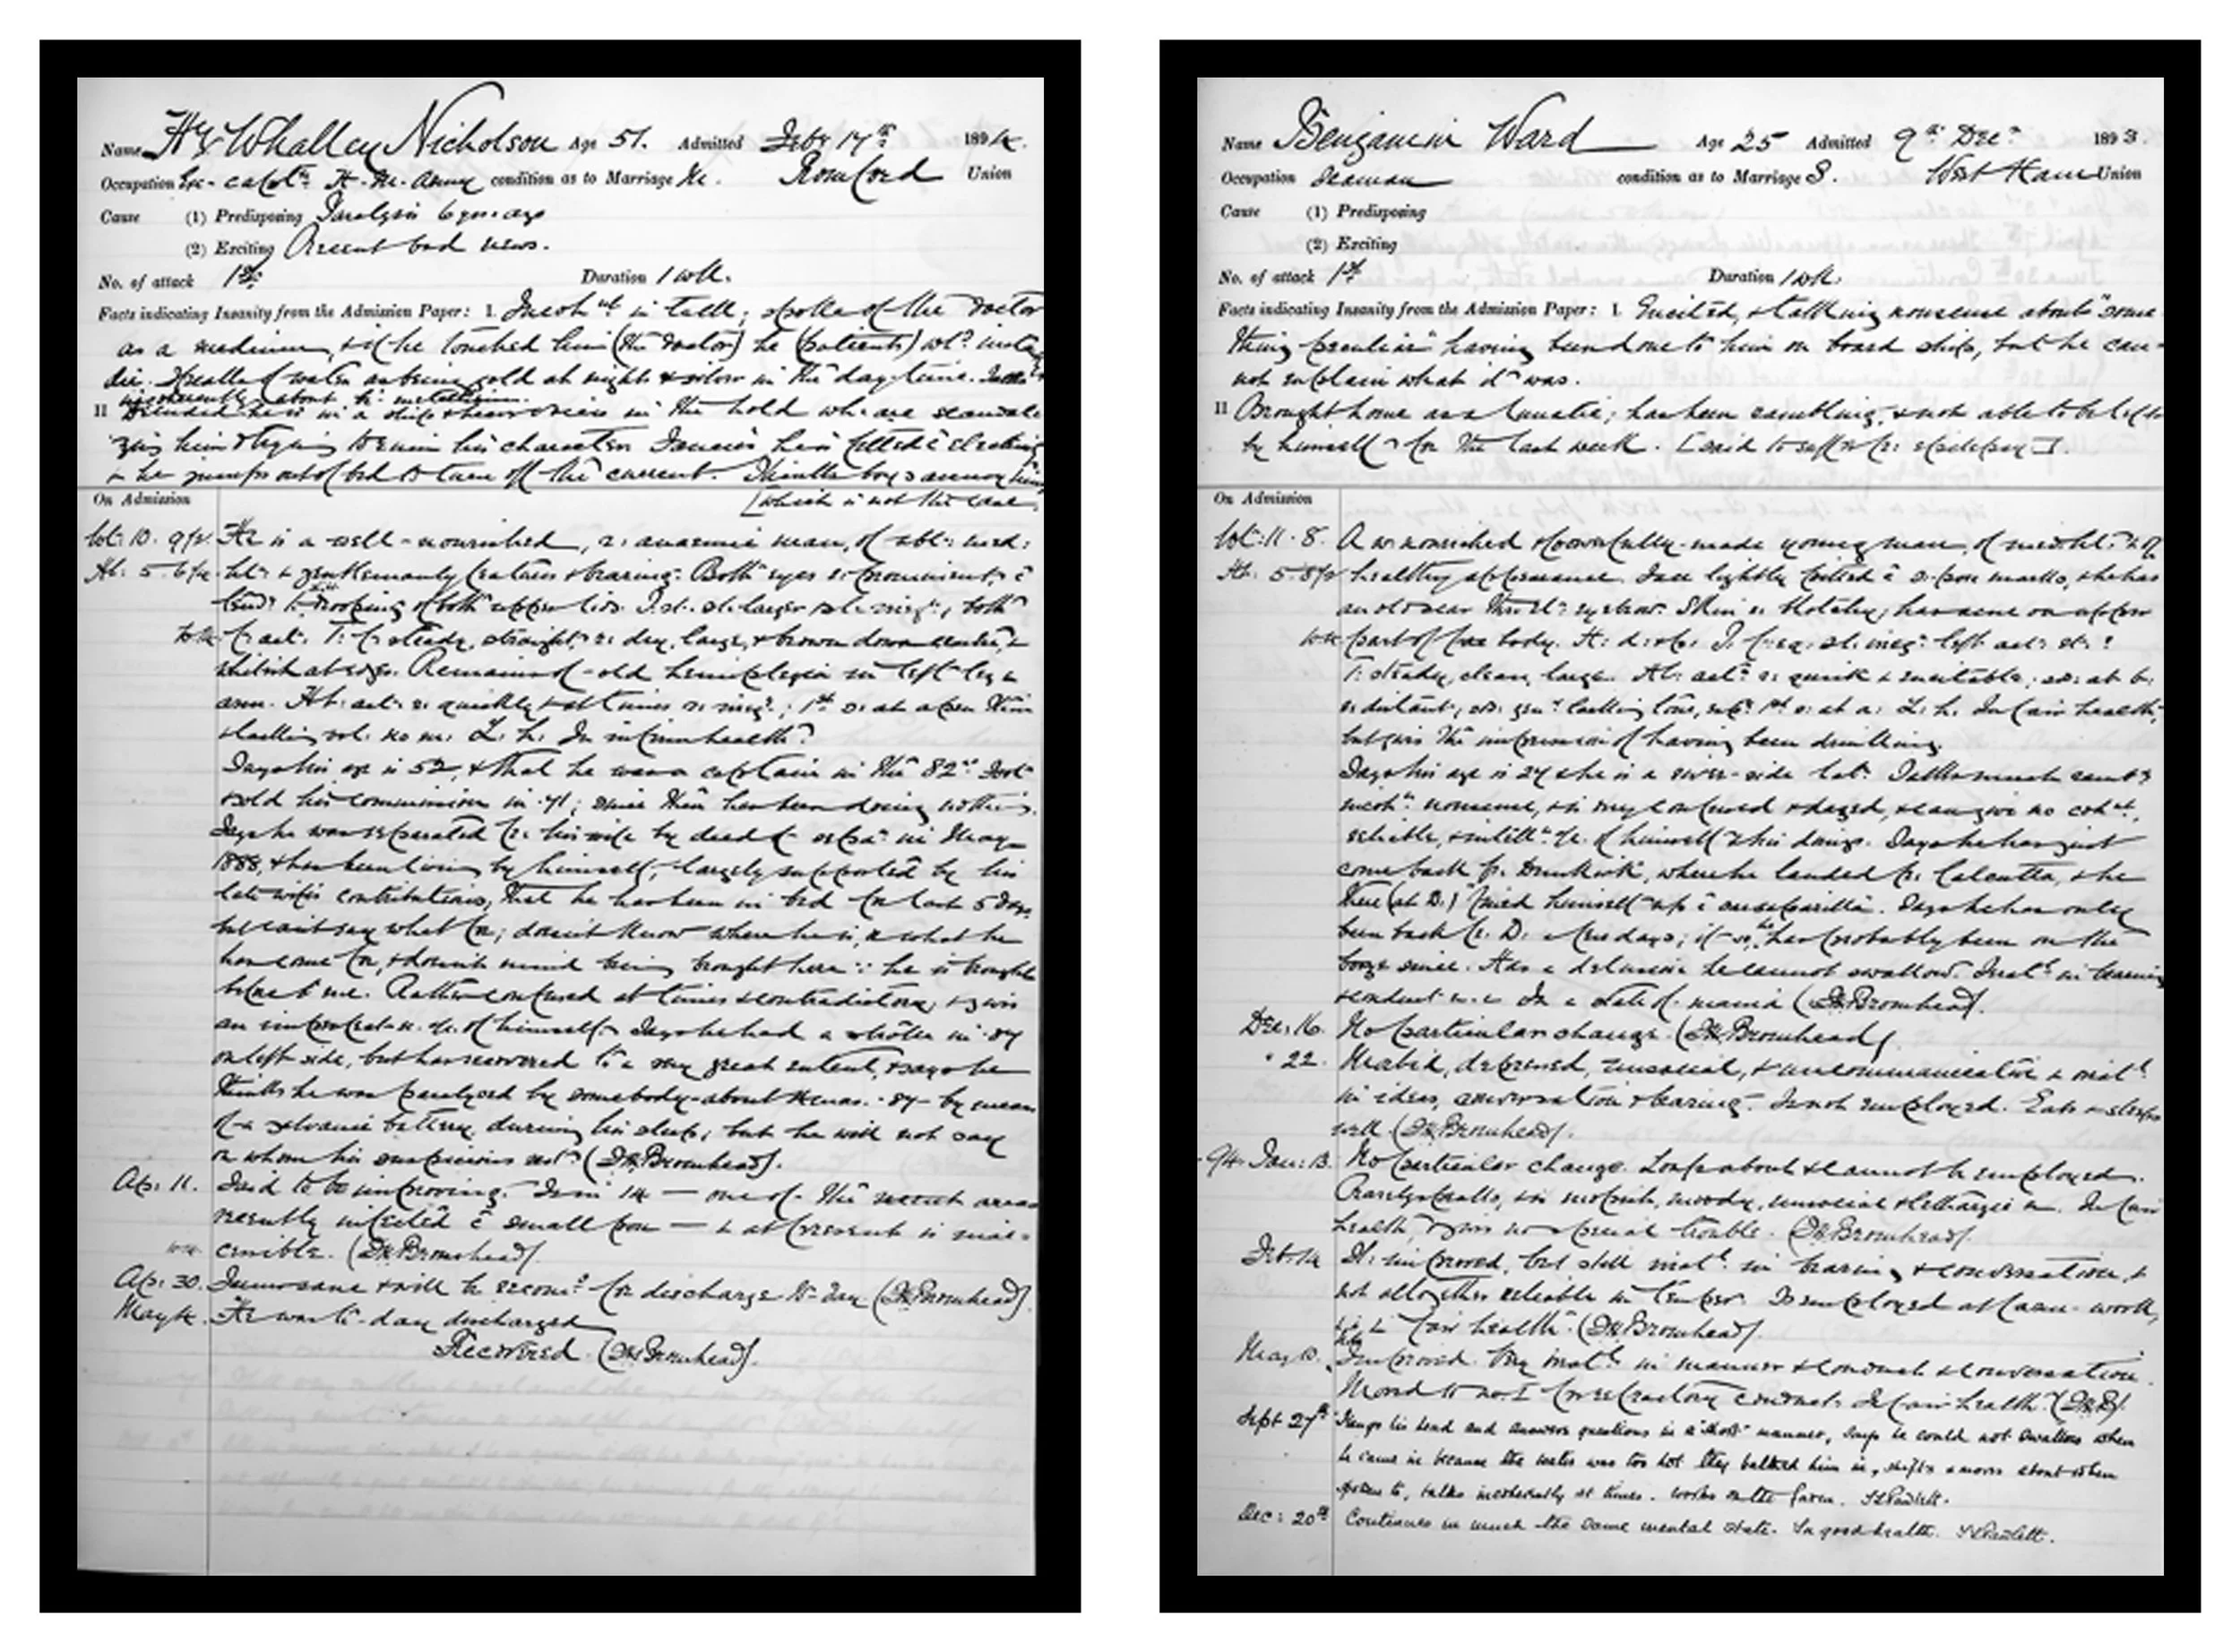 Name Hy Whalley Nicholson Age 51. Admitted Feby 17th 1894.
Occupation Ex-captn H. M. Army condition as to Marriage M. Romford Union
Cause (1) Predisposing Paralysis 6 yrs. ago
(2) Exciting Recent bad news.
No. of attack 1st. Duration 1 wk.
Facts indicating Insanity from the Admission Paper: I. Incoht in talk; spoke of the Doctor
as a medium, & if he touched him (the Doctor) he (patient) wd
die. Spoke of water as being gold at night & silver in the day-time. Talks
incoherently about his
II he is in a ship & hears voices in the hold who are scandali-
zing him & trying to ruin his character. Fancies he is filled c̄ electricity
& he jumps out of bed to turn off the current. Thinks boys annoy him
[which is not the case
On Admission
Wt: 10. 9½. He is a well-nourished, r. anaemic man, of abt: med:
Ht: 5. 6¼. ht: & gentlemanly features & bearing. Both eyes r. prominent, c̄
tendy to drooping of both upper lids. P. sl. larger both
act: T: steady, straight, r. dry, large, & brown down centre, &
whitish at edges. Remains of old hemiplegia in left leg &
arm. Ht: act: r. quickly & at times r. ; 1st s. at apex thin
& lacking vol: no m: L. h. In infirm health.
Says his age is 52, & that he was a captain in the 82nd Foot
& sold his commission in '71; since then has been doing nothing.
Says he was separated fr. his wife by deed of sepn in May
1888, & has been living by himself, largely supported by his
late wife's contributions, that he has been in bed for last 5 days,
but can't say what for; doesn't know where he is, or what he
has come for, & doesn't mind being brought here: he is brought
before me. Rather confused at times & contradictory, & gives
an imperfect of himself. Says he had a stroke in '87
on left side, but has recovered to a very great extent, & says he
thinks he was paralyzed by somebody about Xmas. '87 by means
of a galvanic battery during his sleep; but he will not say
on whom his suspicions rest. (FM. Bromhead).
Ap: 11. Said to be improving. Is in 14 — one of the areas
recently infected c̄ small pox — & at present is inac-
cessible. (FM. Bromhead).
Ap: 30. Is now sane & will be recomd for discharge to-day (FM. Bromhead).
May 4. He was to-day discharged
Recovered (FM. Bromhead).
Name Benjamin Ward Age 25 Admitted 9th Decr 1893.
Occupation Seaman condition as to Marriage S. West Ham Union
Cause (1) Predisposing
(2) Exciting
No. of attack 1st Duration 1 wk.
Facts indicating Insanity from the Admission Paper: I. Excited, & talking nonsense about "some-
thing peculiar" having been done to him on board ship, but he can-
not explain what it was.
II Brought home as a lunatic; has been rambling, & not able to be left
by himself for the last week. [Said to suffer fr: epilepsy].
On Admission
Wt: 11. 8. A w. nourished & powerfully-made young man, of med: ht: & of
Ht: 5. 8½ healthy appearance. Face lightly pitted c̄ s. pox marks, & he has
an old scar thro' lt: eyebrow. Skin r. blotchy; has acne on upper
part of body. H: d: P. left act: sl:
T: steady, clean, large. Ht: act: r. quick & excitable; sds: at b:
r. distant; sds. genly lacking tone, 1st s: at a: L. h. In fair health,
but gives the impression of having been drinking.
Says his age is 27 & he is a river-side labr Talks much
incoht nonsense, & is very confused & dazed, & can give no coht,
reliable, & intellt of himself & his doings. Says he has just
come back fr. Dunkirk, where he landed fr. Calcutta, & he
there (at D.) "fixed himself up c̄ sarsaparilla. Says he has only
been back fr. D. a few days; if so, he has probably been on the
booze since. Has a delusion he cannot swallow. Irratl in bearing
& conduct In a state of mania (FM. Bromhead).
Dec: 16. No particular change. (FM. Bromhead).
" 22. Morbid, depressed, unsocial, & uncommunicative & iratl
in ideas, conversation & bearing. Is not employed. Eats & sleeps
well. (FM. Bromhead).
94. Jan: 13. No particular change. Loafs about & cannot be employed.
Rarely talks, & is mopish, moody, unsocial & lethargic In fair
health, & gives no special trouble. (FM. Bromhead).
Feb: 14 Sl: improved, but still iratl in bearing & conversation, &
not altogether reliable in temper. Is employed at farm-work,
& is in fair health. (FM. Bromhead).
May Improved. Very iratl in manner & conduct & conversation.
Moved to no. I for refractory conduct. In fair health. (FM.B).
Sept 27th Hangs his head and answers questions in a "short" manner, says he could not swallow when
he came in because the water was too hot they bathed him in, shifts & moves about when
spoken to, talks incoherently at times. works on the farm.
Dec: 20th Continues in much the same mental state. In good health.